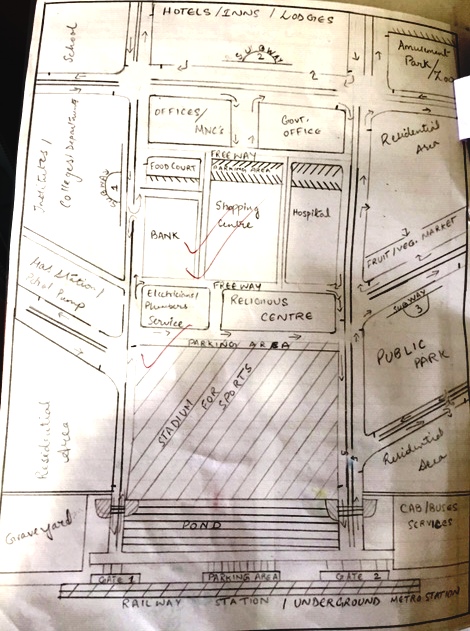 HOTELS / INNS / LODGES
School
SUBWAY
2
Amusement
Park / Zoo
OFFICES /
MNC's
Govt.
OFFICE
Residential
Area
Institutes /
Colleges / Department
SUBWAY
1
FREE WAY
PARKING AREA
FOOD COURT
Shopping
Centre
Hospital
BANK
FRUIT / VEG. MARKET
Gas station /
Petrol Pump
FREE WAY
Electricians /
Plumbers
Service
RELIGIOUS
CENTRE
SUBWAY
3
PARKING AREA
PUBLIC
PARK
STADIUM
FOR
SPORTS
Residential
Area
Residential
Area
Graveyard
CAB / BUSES
SERVICES
POND
GATE 1
PARKING AREA
GATE 2
RAILWAY STATION / UNDERGROUND METRO STATION